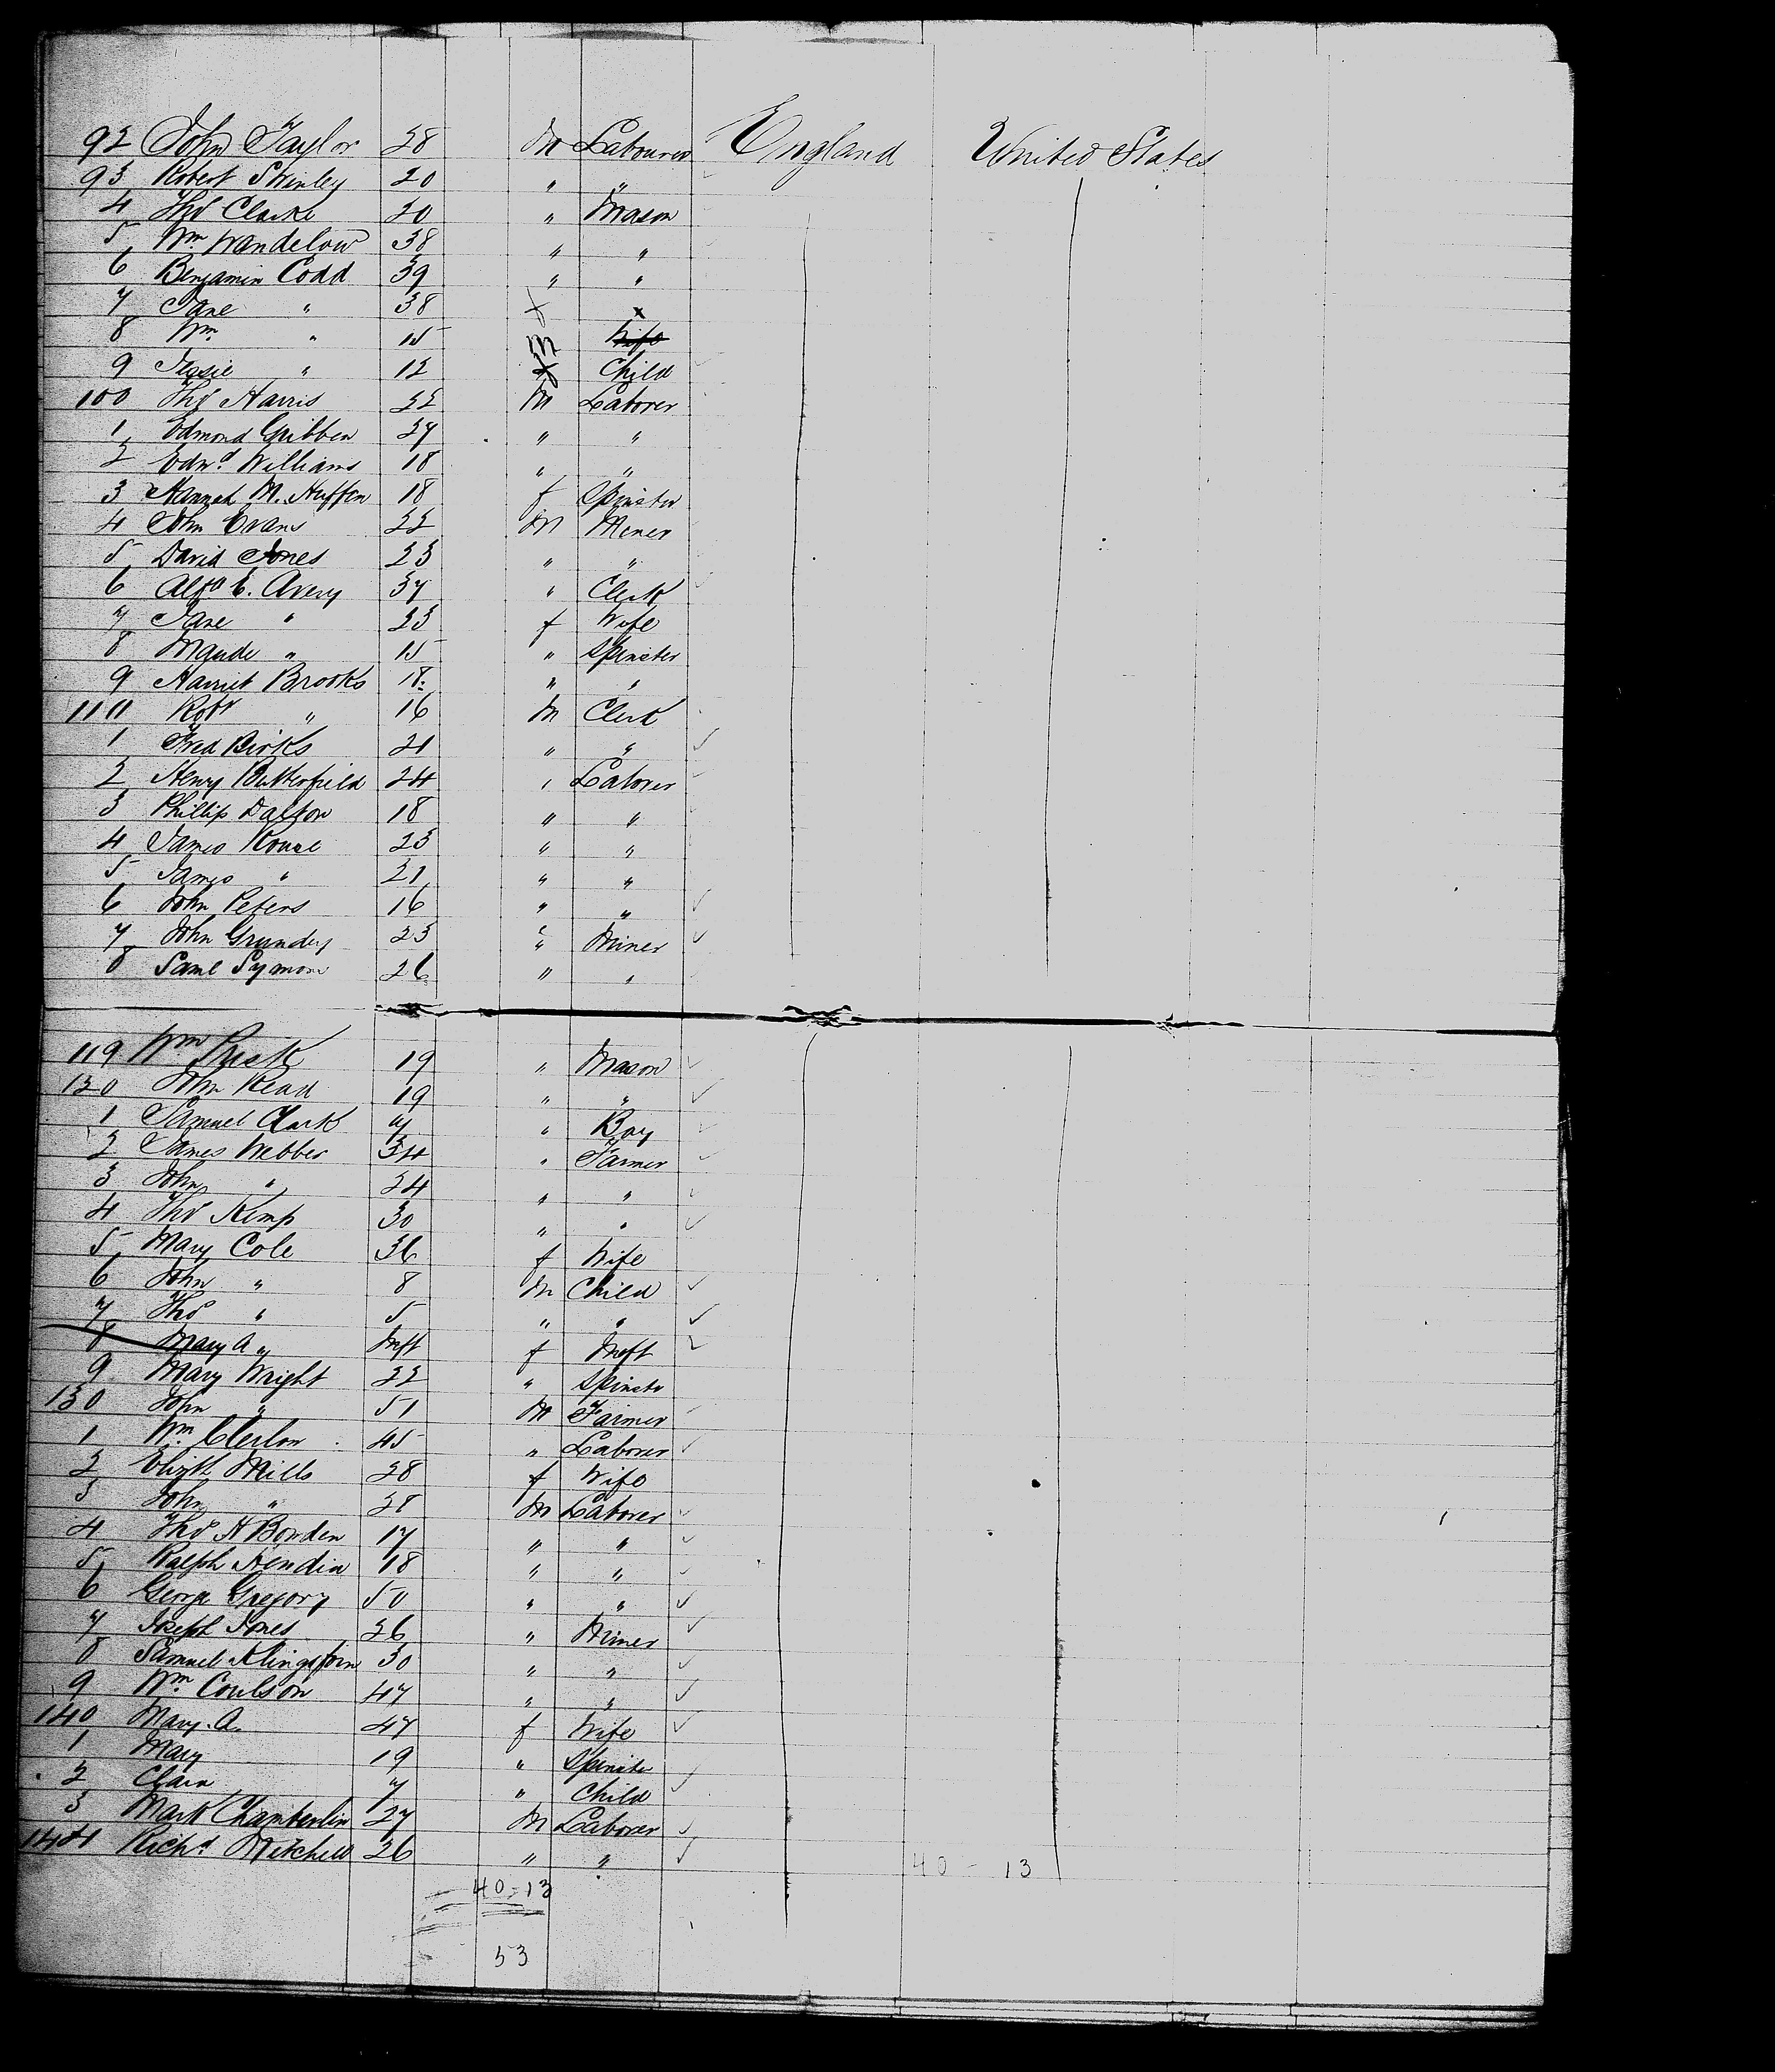 92 John Taylor 28 M Labourer England United States
93 Robert Shinley 20 " "
4 Thos Clarke 20 " Mason
5 Wm Wandelow 38 " "
6 Benjamin Codd 39 " "
7 Jane " 38 x x
8 Wm " 15 Wife
9 Jessie " 12 Child
100 Thos Harris 22 M Laborer
1 Edmond Gribben 27 " "
2 Edwd Williams 18 " "
3 Hannah M. Huffen 18 f Spinster
4 John Evans 22 M Mener
5 David Jones 23 " "
6 Alfd E. Avery 37 " Clerk
7 Jane " 23 f Wife
8 Maude " 15 " Spinster
9 Harriet Brooks 18 " "
110 Robt " 16 M Clerk
1 Fred Birks 21 " "
2 Henry Butterfield 24 " Laborer
3 Phillip Dalton 18 " "
4 James Rouse 23 " "
5 James " 21 " "
6 John Peters 16 " "
7 John Grundy 23 " Miner
8 Saml Symons 26 " "
119 Wm Lusk 19 " Mason
120 John Read 19 " "
1 Samuel Clark 7 " Boy
2 James Webber 34 " Farmer
3 John " 24 " "
4 Thos Kemp 30 " "
5 Mary Cole 36 f Wife
6 John " 8 M Child
7 Thos " 5 " "
8 Mary A " Inft f Inft
9 Mary Wright 22 " Spinstr
130 John " 51 M Farmer
1 Wm 45 " Laborer
2 Elizth Mills 28 f Wife
3 John " 28 M Laborer
4 Thos H Borden 17 " "
5 Ralph Hendin 18 " "
6 George Gregory 50 " "
7 Joseph Jones 26 " Miner
8 Samuel 30 " "
9 Wm Coulson 47 " "
140 Mary. A. 47 f Wife
1 Mary 19 " Spinster
2 Clara 7 " Child
3 Mark Chamberlin 27 M Laborer
144 Richd Mitchell 26 " "
40 - 13
40-13
53